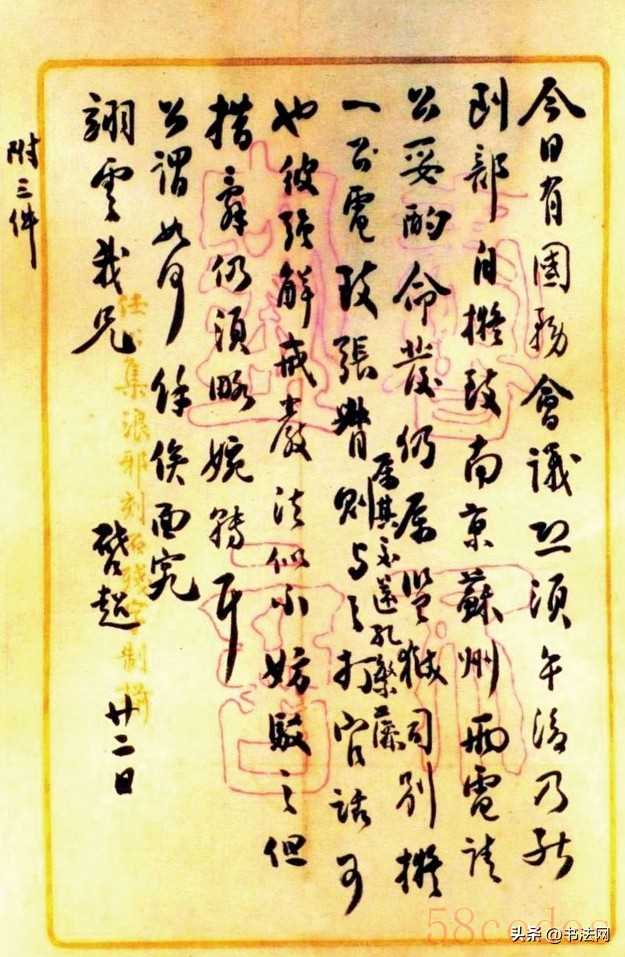 今日有國務會議恐須午後乃能
到部自擬致南京蘇州兩電請
公妥酌命發仍属監獄司別擬
一公電致張督則与之打官話可
属其
也彼強解戒嚴法似不妨駁之但
措辭仍須略婉轉耳
公謂如何餘俟面究
翊雲我兄
啓超 廿二日
附三件
任公集浪邪刻石殘字制牋
58codes
头条 @书法网